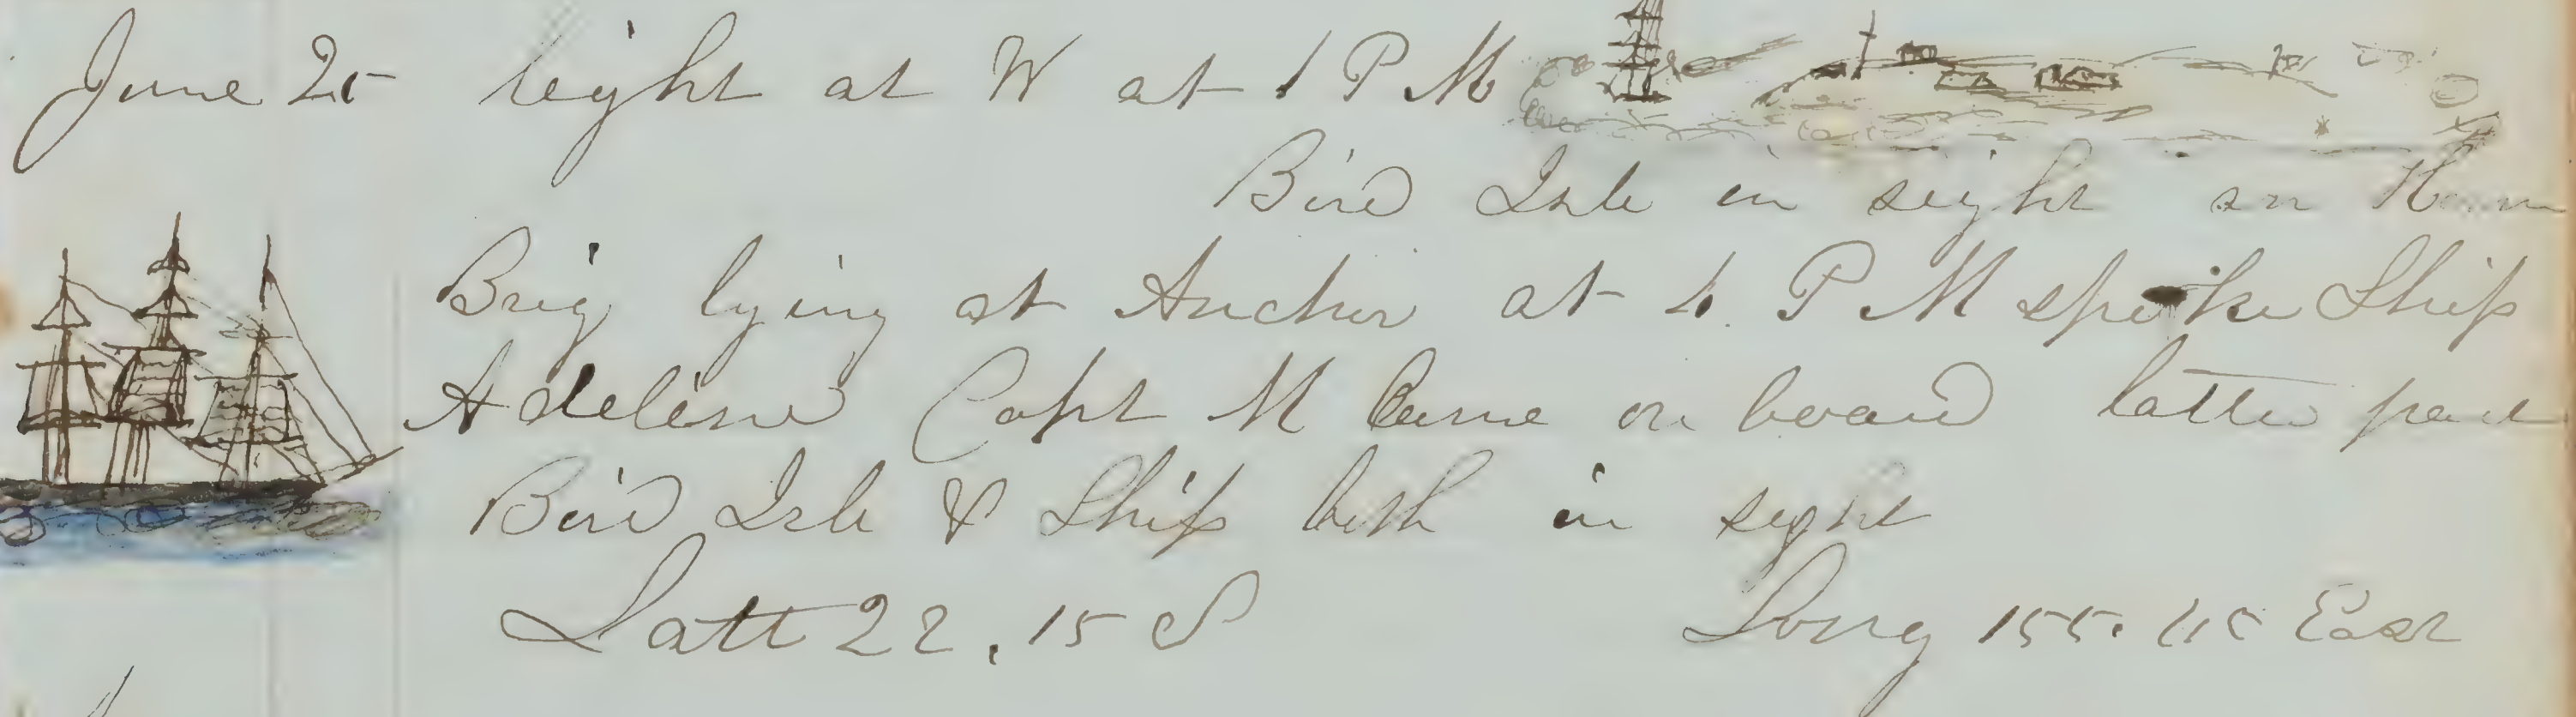 June 25 light at W at 1 P M
Bird Isle in sight an
Brig lying at Anchor at 4 P M spoke Ship
Adeline Capt M Came on board latter part
Bird Isle & Ship both in sight
Latt 22.15 S Long 155. East